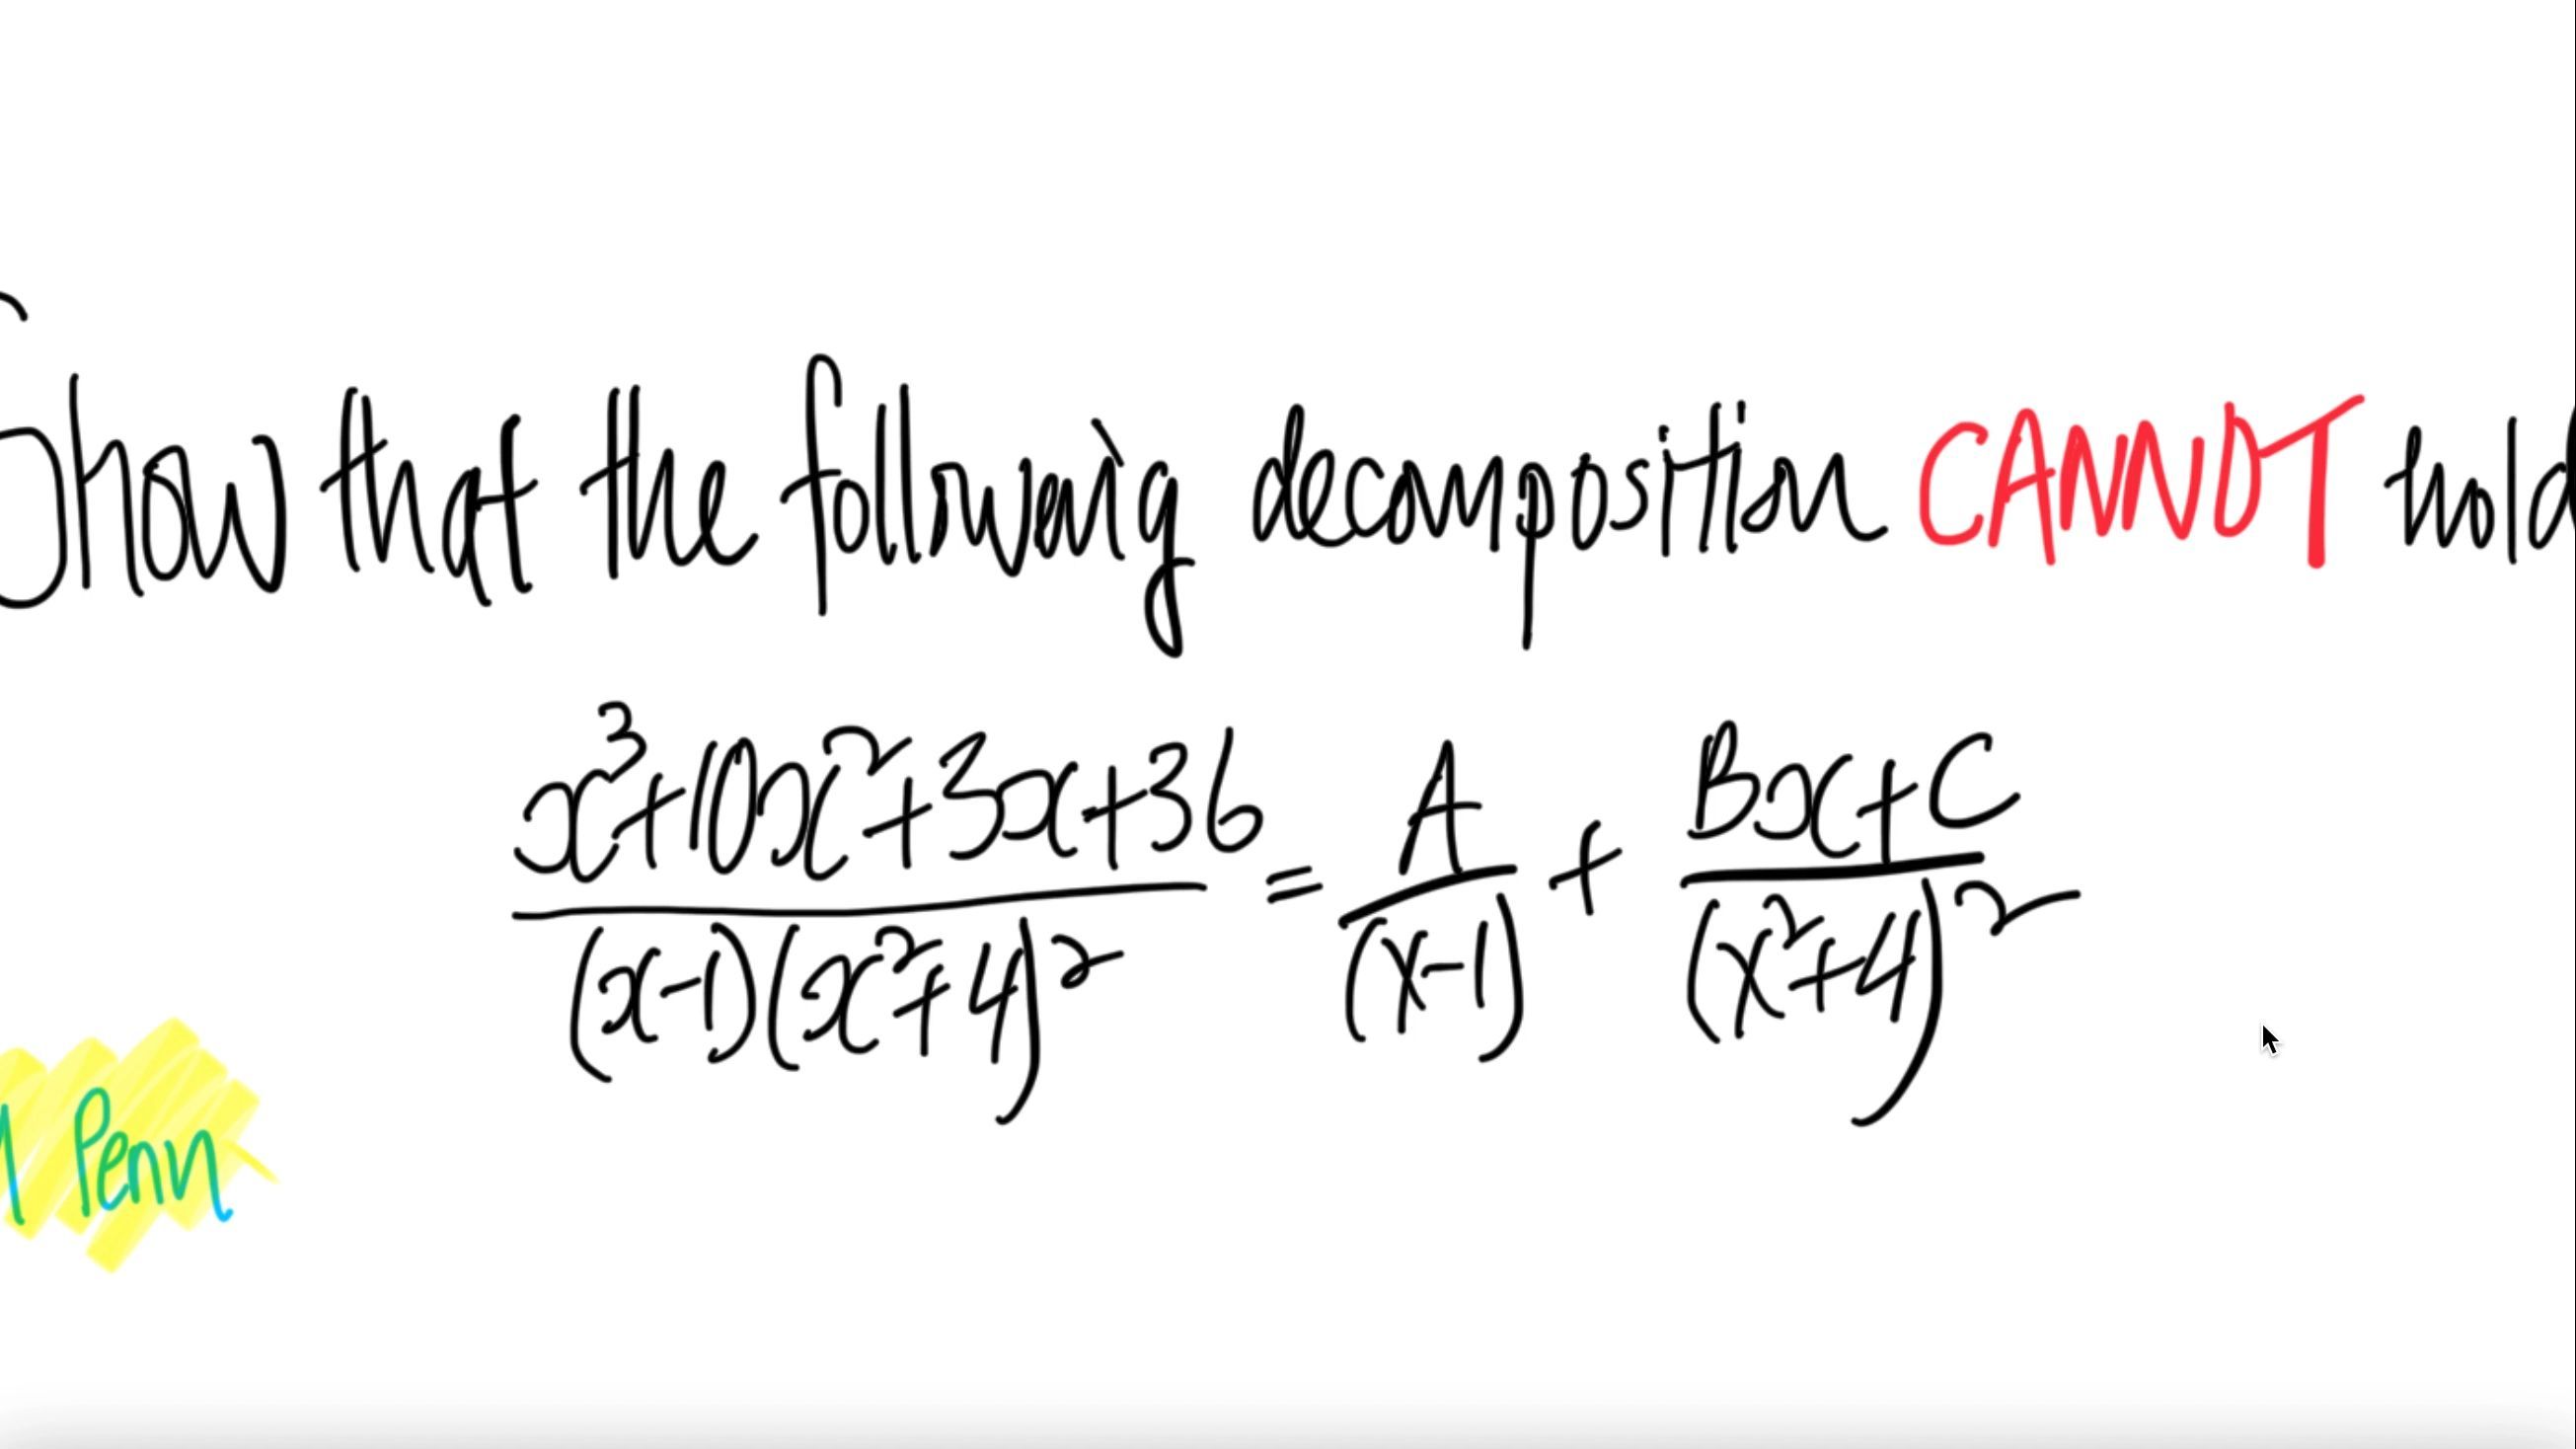 Show that the following decomposition CANNOT hold
x³+10x²+3x+36 / (x-1)(x²+4)² = A/(x-1) + Bx+C / (x²+4)²
Penn